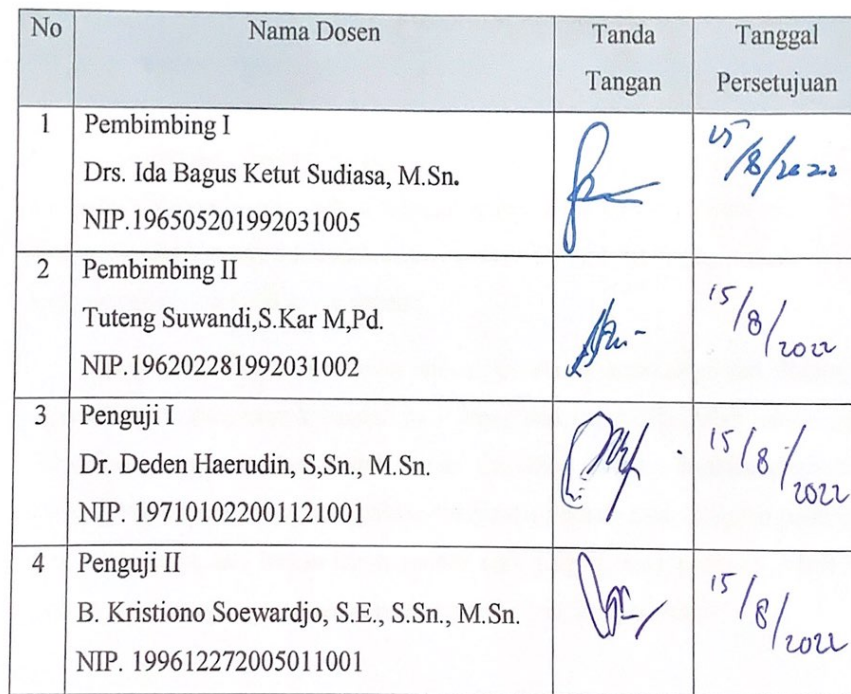 No Nama Dosen Tanda Tangan Tanggal Persetujuan
1 Pembimbing I
Drs. Ida Bagus Ketut Sudiasa, M.Sn.
NIP.196505201992031005
15/8/2022
2 Pembimbing II
Tuteng Suwandi,S.Kar M,Pd.
NIP.196202281992031002
15/8/2022
3 Penguji I
Dr. Deden Haerudin, S,Sn., M.Sn.
NIP. 197101022001121001
15/8/2022
4 Penguji II
B. Kristiono Soewardjo, S.E., S.Sn., M.Sn.
NIP. 199612272005011001
15/8/2022